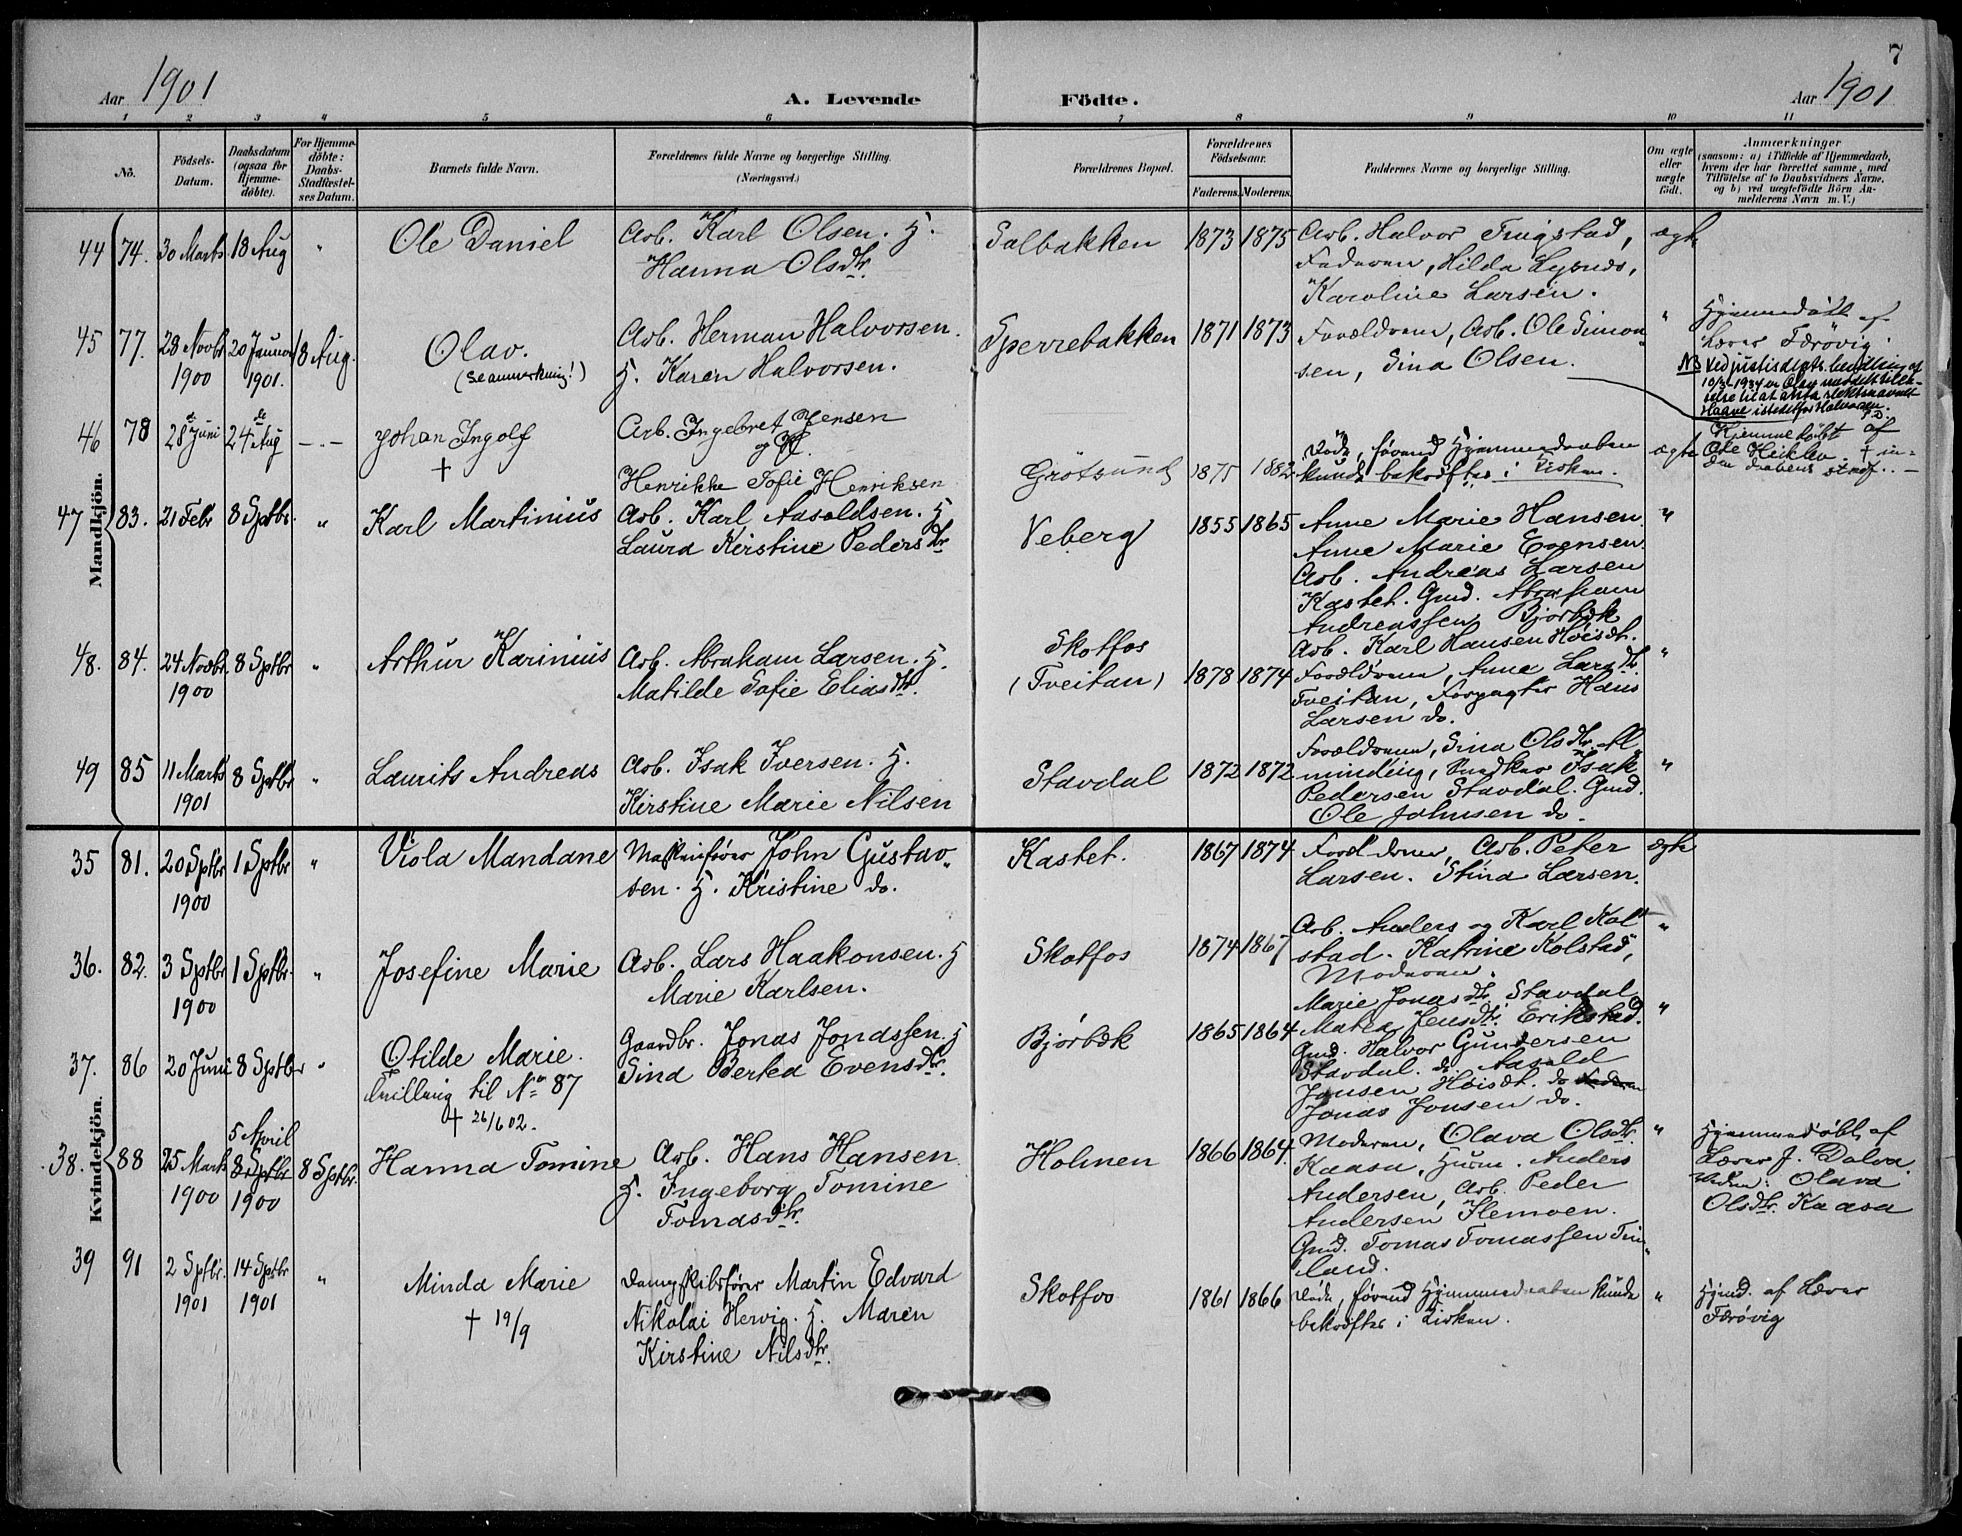 7
Aar 1901
A. Levende Födte.
Aar 1901
1 2 3 4 5 6 7 8 9 10 11
No.
Födsels-
Datum.
Daabsdatum
(ogsaa for
Hjemme-
döbte).
For Hjemme-
döbte:
Daabs-
Stadfæstel-
ses Datum.
Barnets fulde Navn.
Forældrenes fulde Navne og borgerlige Stilling.
(Næringsvei.)
Forældrenes Bopæl.
Forældrenes
Födselsaar.
Faderens. Moderens.
Faddernes Navne og borgerlige Stilling.
Om ægte
eller
uægte
født.
Anmærkninger
(saasom: a) i Tilfælde af Hjemmedaab,
hvem der har forrettet samme, med
Tilföielse af to Daabsvidners Navne,
og b) ved uegtefödte Börn An-
melderens Navn m. V.)
Mandkjön.
44 74. 30 Marts 18 Aug " Ole Daniel
Arb. Karl Olsen. H.
Hanna Olsdtr.
Salbakken 1873 1875
Arb. Halvor Trugstad,
Faderen, Hilda
Karoline Larsen.
ægte
45 77. 28 Novbr 1900
20 Januar 1901. 18 Aug.
Olav.
(se anmerkning!)
Arb. Herman Halvorsen.
H. Karen Halvorsen.
Sperrebakken 1871 1873
Forældrene, Arb. Ole Simon-
sen, Sina Olsen.
"
Hjemmedöbt af
Lærer Færövig.
NB Ved justisdepts. bevilling af
10/3-1934 er Olav meddelt tilla-
telse til at anta slektsnavnet
Haave istedetfor Halvorsen.
46 78 28 de Juni 24 de Aug — " —
Johan Ingolf
+
Arb. Ingebret Jensen
og H.
Henrikke Sofie Henriksen
Grötsund 1875 1882
Döde, förend Hjemmedaaben
kunde bekræftes i Kirken.
ægte
Hjemmedöbt af
Ole + in-
den daabens stadf. . —
47 83. 21 Febr 8 Sptbr. " Karl Martinius
Arb. Karl Aasoldsen. H
Laura Kirstine Pedersdtr
Veberg 1855 1865
Anne Marie Hansen
Anne Marie Evensen.
Arb. Andreas Larsen
Kastet. Gmd. Abraham
Andreassen Bjorbæk
Arb. Karl Hansen Høisdt.
"
48. 84. 24 Novbr. 1900
8 Sptbr " Arthur Karinius
Arb. Abraham Larsen. H.
Matilde Sofie Eliasdtr.
Skotfos
(Tveitan) 1878 1874
Forældrene, Anne Larsdtr
Tveitan, Forpagter Hans
Larsen do.
"
49 85 11 Marts 1901
8 Sptbr " Laurits Andreas
Arb. Isak Iversen. H.
Kirstine Marie Nilsen
Stavdal 1872 1872
Forældrene, Sina Olsdtr. Al-
minding, Isak
Pedersen Stavdal. Gmd.
Ole Johnsen do.
"
Kvindekjön.
35 81. 20 Sptbr 1900
1 Sptbr " Viola Mandane
Maskinförer John Gustav-
sen. H. Kristine do.
Kastet. 1867 1874
Forældrene, Arb. Peter
Larsen. Stina Larsen.
ægte
36. 82. 3 Sptbr 1900
1 Sptbr. " Josefine Marie
Arb. Lars Haakonsen. H
Marie Karlsen.
Skotfos 1874 1867
Arb. Anders og Karl Kol-
stad. Katrine Kolstad,
Moderen.
"
37. 86 20 Juni 8 Sptbr "
Otilde Marie.
Tvilling til No 87
+ 26/6 02.
Gaardbr. Jonas Jonassen. H
Sina Berthea Evensdtr.
Bjørbæk 1865 1864
Marie Jonasdtr. Stavdal
Jensdtr. Erikstad.
Gmd. Halvor Gundersen
Stavdal. do Aasold
Jansen Høisdt. do
Jonas Jonsen do.
"
38. 88 25 Marts 1900
5 April
8 Sptbr
1900
8 Sptbr.
Hanna Tomine
Arb. Hans Hansen.
H. Ingeborg Tomine
Tomasdtr.
Holmen 1866 1864.
Moderen, Olava Olsdtr.
Kaasa, Husm. Anders
Andersen, Arb. Peder
Andersen Flemoen.
Gmd. Tomas Tomassen Tin-
land.
"
Hjemmedöbt af
Lærer J. Dalva.
Vidne: Olava
Olsdtr. Kaasa
39 91 2 Sptbr. 1901
14 Sptbr 1901
" Minda Marie
+ 19/9
Dampskibsförer Martin Edvard
Nikolai Hervig. H. Maren
Kirstine Nilsdtr.
Skotfos 1861 1866
Döde, förend Hjemmedaaben kunde
bekræftes i Kirken.
"
Hjmd. af Lærer
Færövig